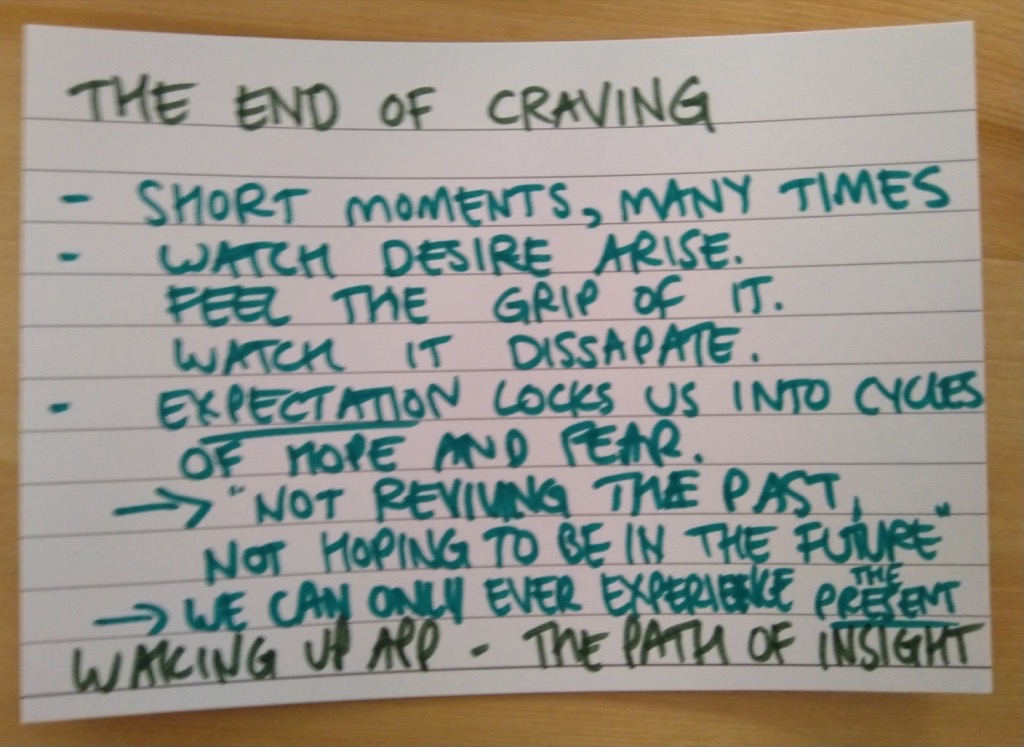 THE END OF CRAVING
- SHORT MOMENTS, MANY TIMES
- WATCH DESIRE ARISE.
FEEL THE GRIP OF IT.
WATCH IT DISSAPATE.
- EXPECTATION LOCKS US INTO CYCLES
OF HOPE AND FEAR.
→ "NOT REVIVING THE PAST,
NOT HOPING TO BE IN THE FUTURE"
→ WE CAN ONLY EVER EXPERIENCE THE PRESENT
WAKING UP APP - THE PATH OF INSIGHT